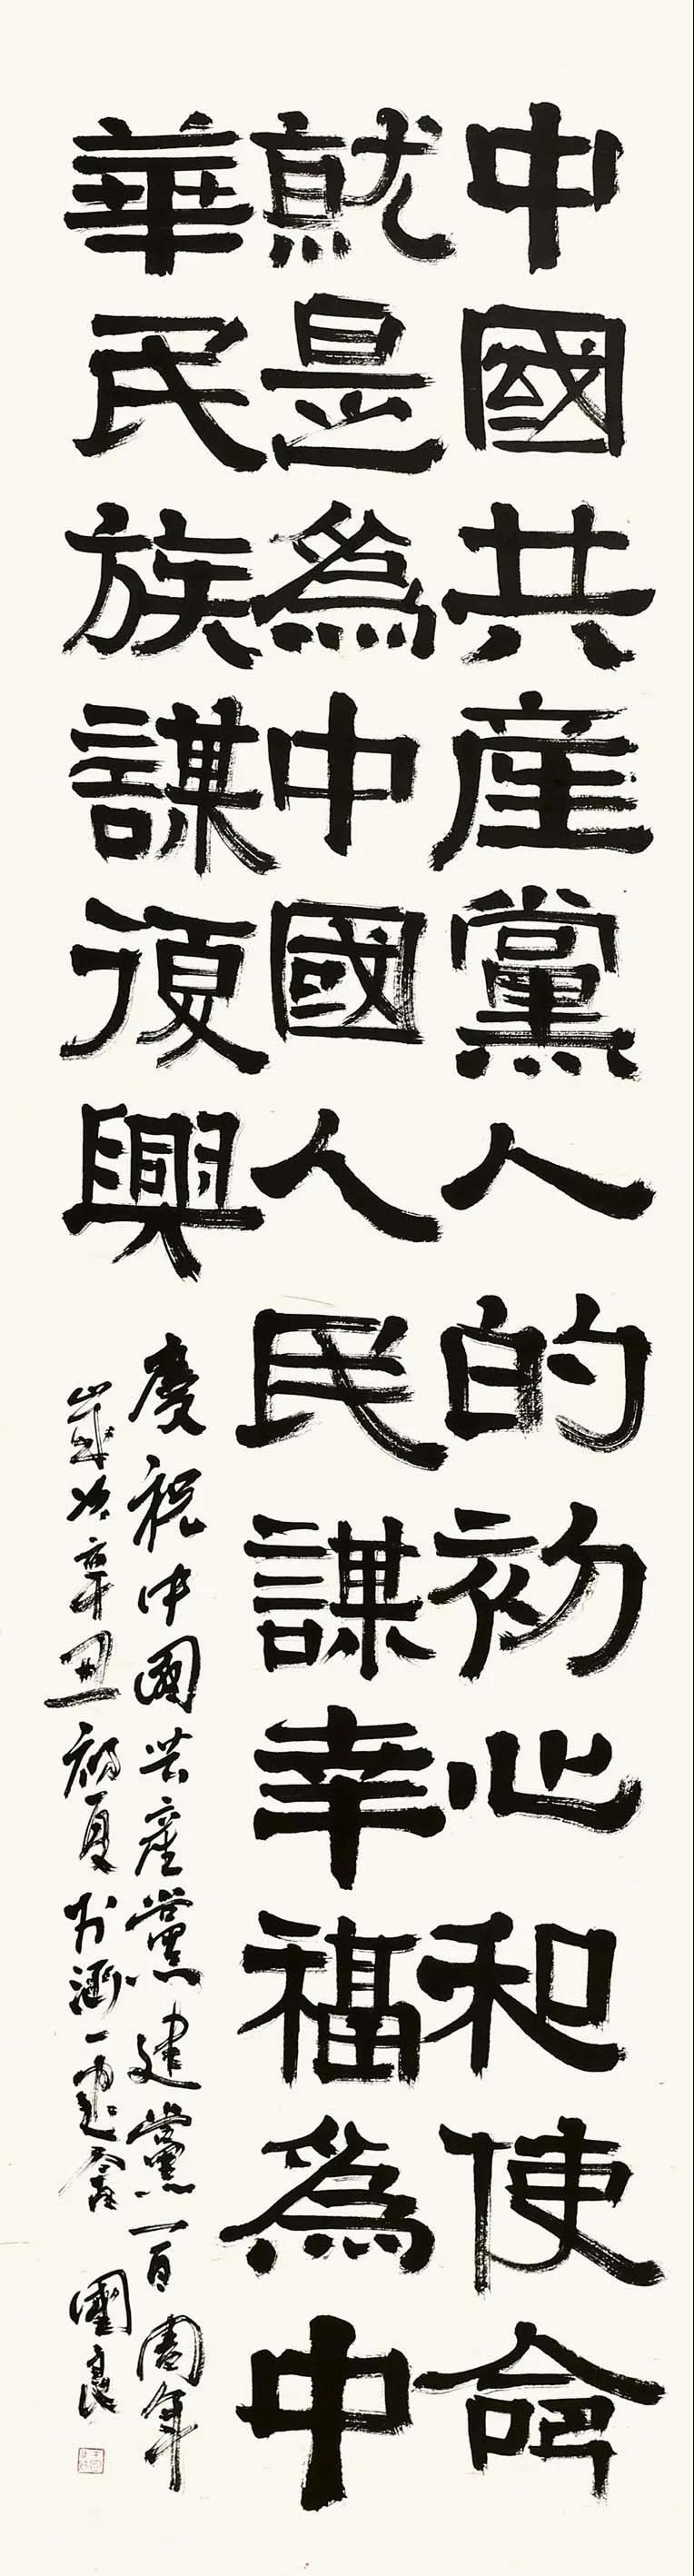 中國共産黨人的初心和使命
就是為中國人民謀幸福為中
華民族謀復興
慶祝中國共產黨建黨一百周年
歲次辛丑初夏於涵一画齋 國良